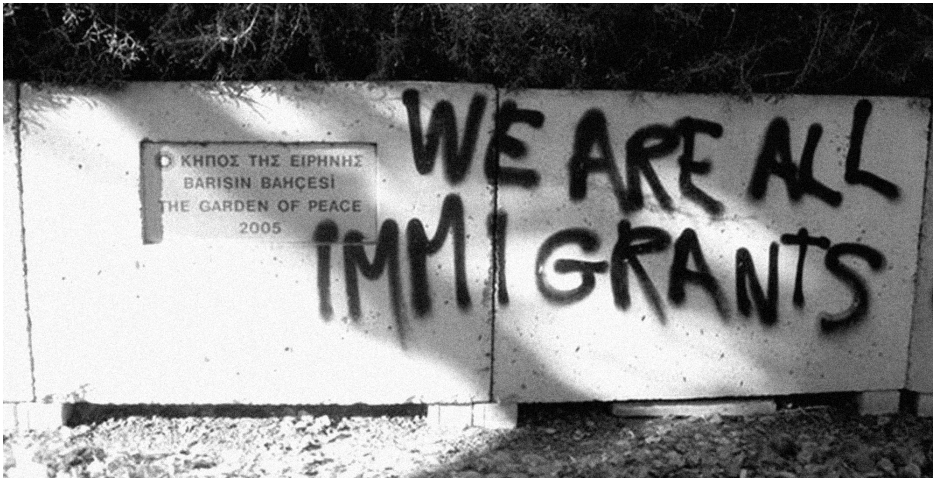 Ο ΚΗΠΟΣ ΤΗΣ ΕΙΡΗΝΗΣ
BARISIN BAHÇESİ
THE GARDEN OF PEACE
2005
WE ARE ALL
IMMIGRANTS